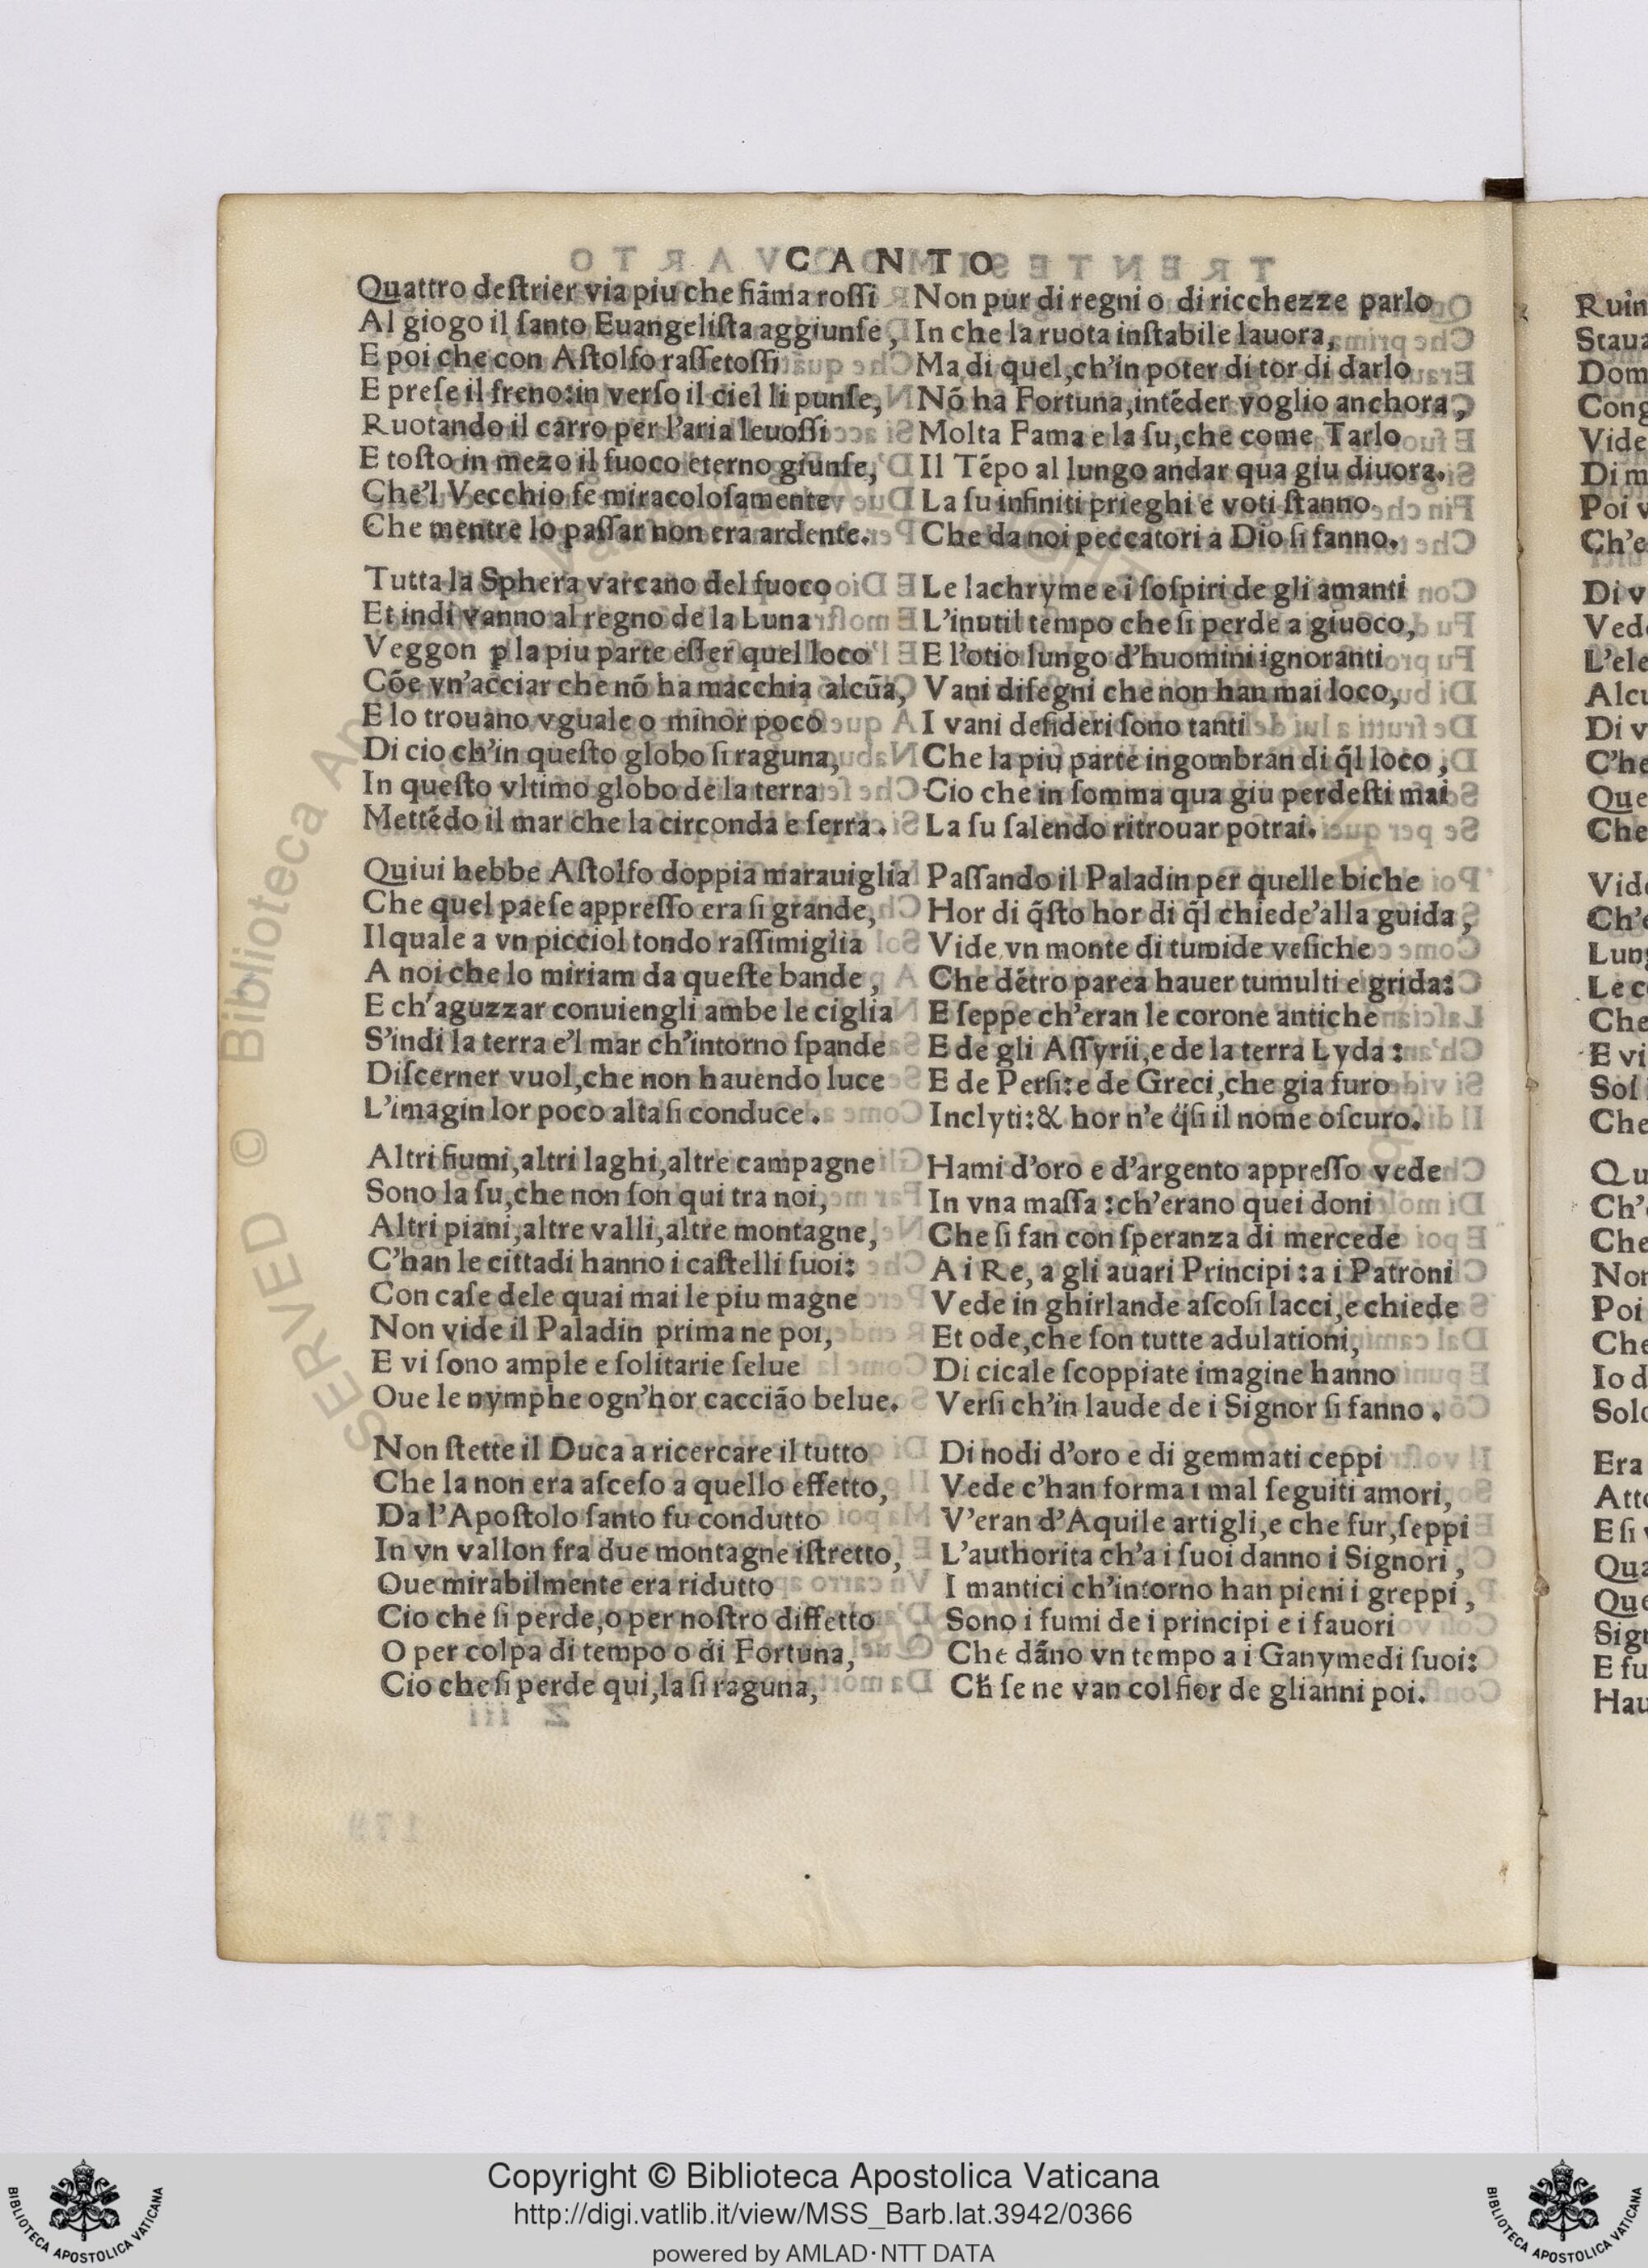 CANTO
Quattro deſtrier via piu che fiãma roſſi
Al giogo il ſanto Euangeliſta aggiunſe,
E poi che con Aſtolfo raſſetoſſi
E preſe il freno:in verſo il ciel li punſe,
Ruotando il carro per l'aria leuoſſi
E toſto in mezo il fuoco eterno giunſe,
Che'l Vecchio fe miracoloſamente
Che mentre lo paſſar non era ardente.
Tutta la Sphera varcano del fuoco
Et indi vanno al regno de la Luna
Veggon ꝑ la piu parte eſſer quel loco
Cõe vn'acciar che nõ ha macchia alcũa,
E lo trouano vguale o minor poco
Di cio ch'in queſto globo ſi raguna,
In queſto vltimo globo de la terra
Mettẽdo il mar che la circonda e ſerra.
Quiui hebbe Aſtolfo doppia marauiglia
Che quel paeſe appreſſo era ſi grande,
Ilquale a vn picciol tondo raſſimiglia
A noi che lo miriam da queſte bande,
E ch'aguzzar conuiengli ambe le ciglia
S'indi la terra e'l mar ch'intorno ſpande
Diſcerner vuol,che non hauendo luce
L'imagin lor poco alta ſi conduce.
Altri fiumi,altri laghi,altre campagne
Sono la ſu,che non ſon qui tra noi,
Altri piani,altre valli,altre montagne,
C'han le cittadi hanno i caſtelli ſuoi:
Con caſe dele quai mai le piu magne
Non vide il Paladin prima ne poi,
E vi ſono ample e ſolitarie ſelue
Oue le nymphe ogn'hor caccião belue.
Non ſtette il Duca a ricercare il tutto
Che la non era aſceſo a quello effetto,
Da l'Apoſtolo ſanto fu condutto
In vn vallon fra due montagne iſtretto,
Oue mirabilmente era ridutto
Cio che ſi perde,o per noſtro diffetto
O per colpa di tempo o di Fortuna,
Cio che ſi perde qui,la ſi raguna,
Non pur di regni o di ricchezze parlo
In che la ruota inſtabile lauora,
Ma di quel,ch'in poter di tor di darlo
Nõ ha Fortuna,intẽder voglio anchora,
Molta Fama e la ſu,che come Tarlo
Il Tẽpo al lungo andar qua giu diuora.
La ſu infiniti prieghi e voti ſtanno
Che da noi peccatori a Dio ſi fanno.
Le lachryme e i ſoſpiri de gli amanti
L'inutil tempo che ſi perde a giuoco,
E l'otio lungo d'huomini ignoranti
Vani diſegni che non han mai loco,
I vani deſideri ſono tanti
Che la piu parte ingombran di q̃l loco,
Cio che in ſomma qua giu perdeſti mai
La ſu ſalendo ritrouar potrai.
Paſſando il Paladin per quelle biche
Hor di q̃ſto hor di q̃l chiede'alla guida,
Vide vn monte di tumide veſiche
Che dẽtro parea hauer tumulti e grida:
E ſeppe ch'eran le corone antiche
E de gli Aſſyrii,e de la terra Lyda:
E de Perſi:e de Greci,che gia furo
Inclyti:& hor n'e q̃ſi il nome oſcuro.
Hami d'oro e d'argento appreſſo vede
In vna maſſa:ch'erano quei doni
Che ſi fan con ſperanza di mercede
A i Re, a gli auari Principi:a i Patroni
Vede in ghirlande aſcoſi lacci,e chiede
Et ode,che ſon tutte adulationi,
Di cicale ſcoppiate imagine hanno
Verſi ch'in laude de i Signor ſi fanno.
Di nodi d'oro e di gemmati ceppi
Vede c'han forma i mal ſeguiti amori,
V'eran d'Aquile artigli,e che fur,ſeppi
L'authorita ch'a i ſuoi danno i Signori,
I mantici ch'intorno han pieni i greppi,
Sono i fumi de i principi e i fauori
Che dãno vn tempo a i Ganymedi ſuoi:
Ch̃ ſe ne van col fior de gli anni poi.
Ruin
Staua
Dom
Cong
Vide
Di m
Poi v
Ch'e
Di v
Vede
L'ele
Alcu
Di v
C'he
Que
Che
Vide
Ch'e
Lung
Le c
Che
E vi
Sol
Che
Qu
Ch'
Che
Non
Poi
Che
Io d
Solo
Era
Atto
E ſi v
Qua
Que
Sign
E fu
Hau
Copyright © Biblioteca Apostolica Vaticana
http://digi.vatlib.it/view/MSS_Barb.lat.3942/0366
powered by AMLAD·NTT DATA
BIBLIOTECA APOSTOLICA VATICANA
BIBLIOTECA APOSTOLICA VATICANA